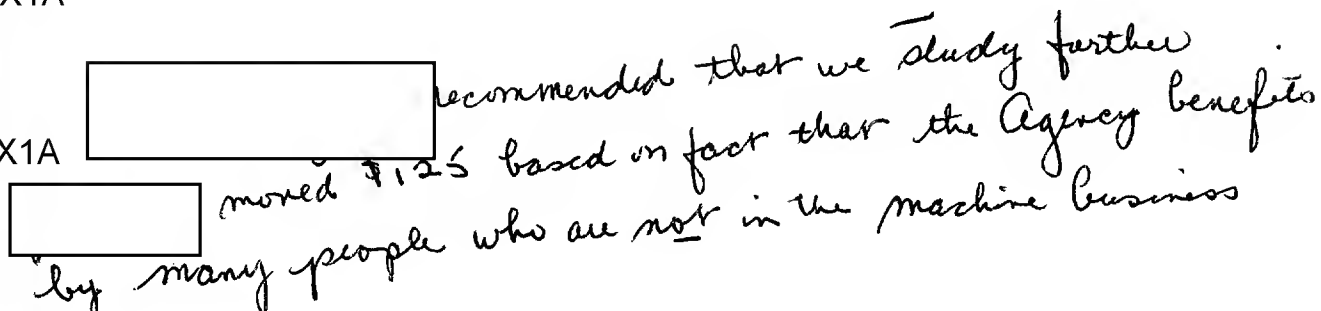 X1A
recommended that we study further
X1A
moved $125 based on fact that the Agency benefits
"by many people who are not in the machine business